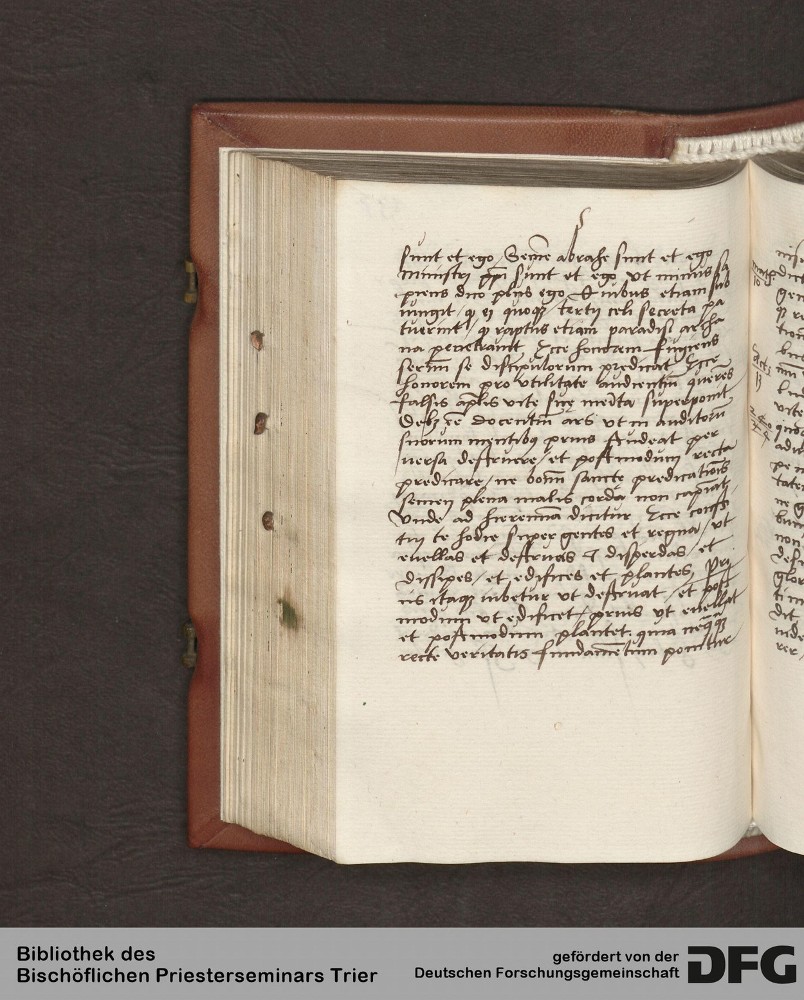 sunt et ego / Semē abrahe sunt et ego
ministri x̄pī sunt et ego ut minus sa
piens dico plus ego / Quibus etiam sub
iungit / q̄ ei quoqȝ tertii celi secreta pa
tuerint / q̄ raptus etiam paradisi archa
na penetrauit / Ecce honorem fugiens
seruū se discipulorum predicat / Ecce
honorem pro utilitate audientiū querēs
falsis aplīs uite sue merita superponit
Debȝ eē docentiū ars ut in auditorū
suorum mentibȝ prius studeat per
uersa destruere / et postmodum recta
predicare / ne bonū sancte predicatiōis
semen plena malis corda non capiāt /
Unde ad hieremiā dicitur Ecce consti
tui te hodie super gentes et regna / ut
euellas et destruas et disperdas / et
dissipes / et edifices et plantes / Pri
us itaqȝ iubetur ut destruat / et post
modum ut edificet / prius ut euellat
et postmodum plantet. quia neqȝ
recte ueritatis fundamētum ponitur
Bibliothek des
Bischöflichen Priesterseminars Trier
gefördert von der
Deutschen Forschungsgemeinschaft
DFG